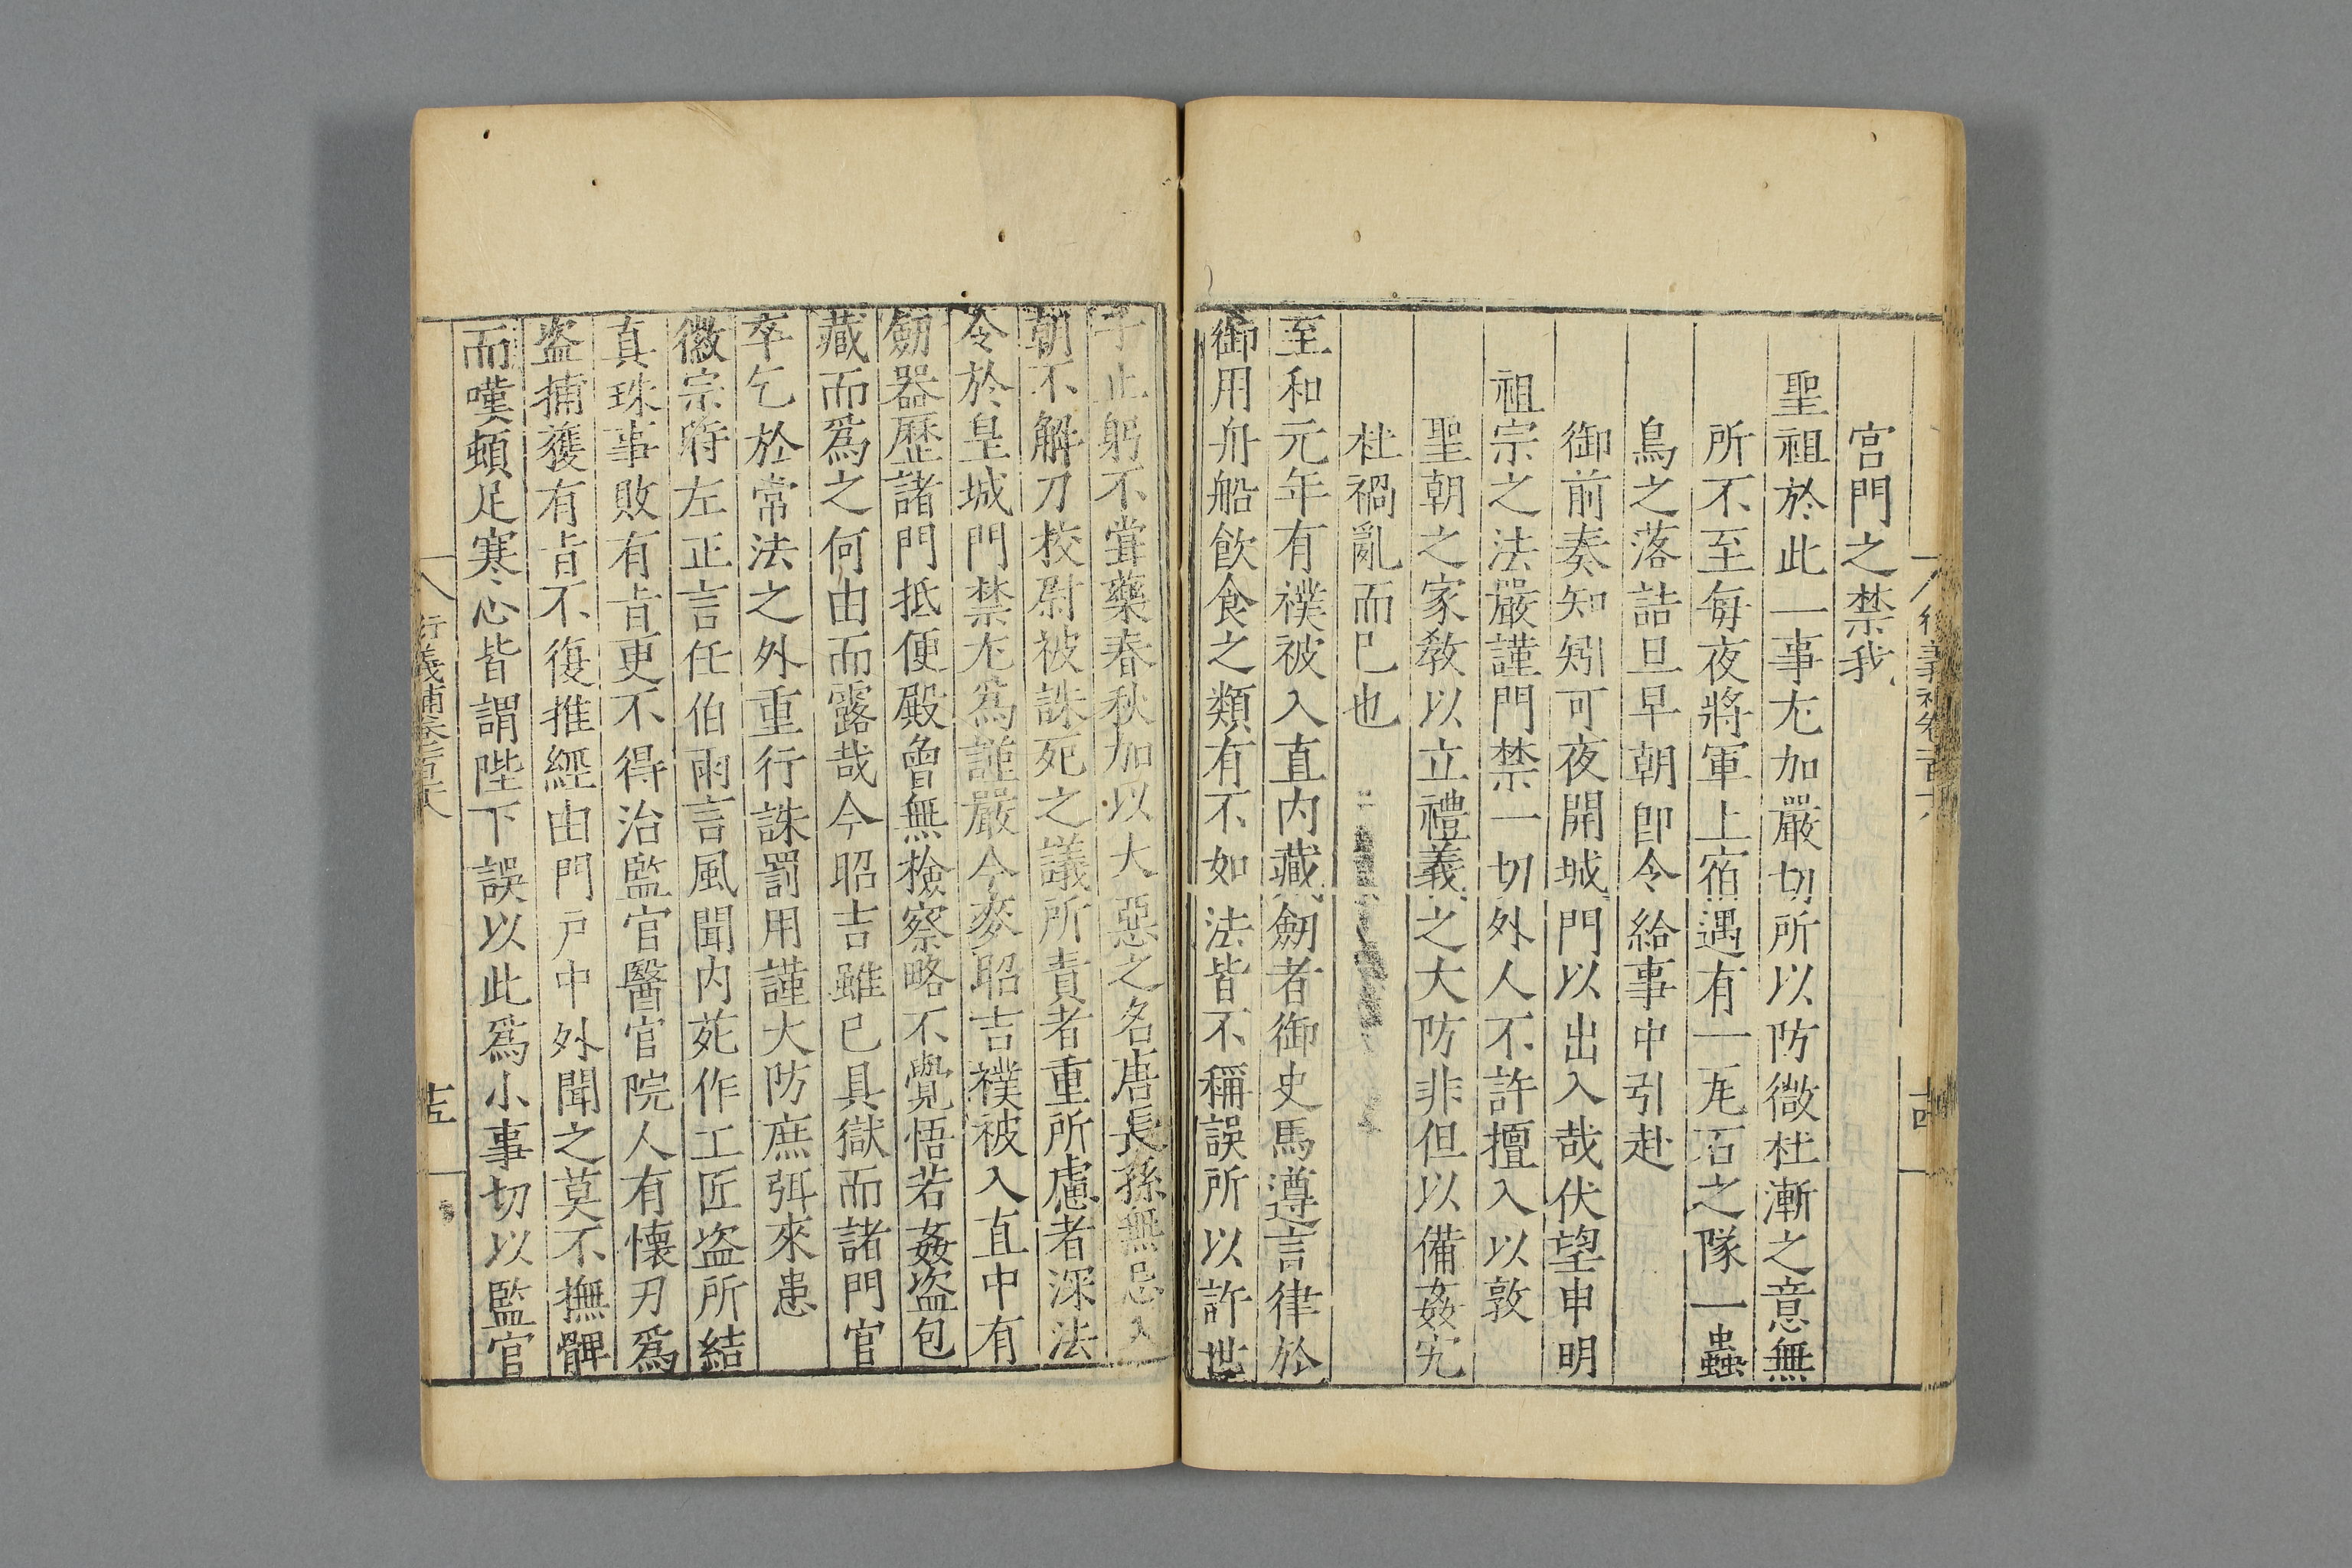 宮門之禁我
聖祖於此一事尤加嚴切所以防微杜漸之意無
所不至每夜將軍上宿遇有一瓦石之隊一蟲
鳥之落詰旦早朝即令給事中引赴
御前奏知矧可夜開城門以出入哉伏望申明
祖宗之法嚴謹門禁一切外人不許擅入以敦
聖朝之家教以立禮義之大防非但以備姦宄
杜禍亂而已也
至和元年有襆被入直内藏劒者御史馬遵言律於
御用舟船飲食之類有不如法皆不稱誤所以許世
子止躬不嘗藥春秋加以大惡之名唐長孫無忌入
朝不解刀校尉被誅死之議所責者重所慮者深法
令於皇城門禁尤爲謹嚴今麥昭吉襆被入直中有
劒器歷諸門抵便殿曾無檢察略不覺悟若姦盗包
藏而爲之何由而露哉今昭吉雖已具獄而諸門官
卒乞於常法之外重行誅罰用謹大防庶弭來患
徽宗時左正言任伯雨言風聞内苑作工匠盗所結
真珠事敗有㫖更不得治監官醫官院人有懐刃爲
盗捕獲有㫖不復推經由門戸中外聞之莫不撫髀
而嘆頓足寒心皆謂陛下誤以此爲小事切以監官
行義補卷一百十八
十五
十四